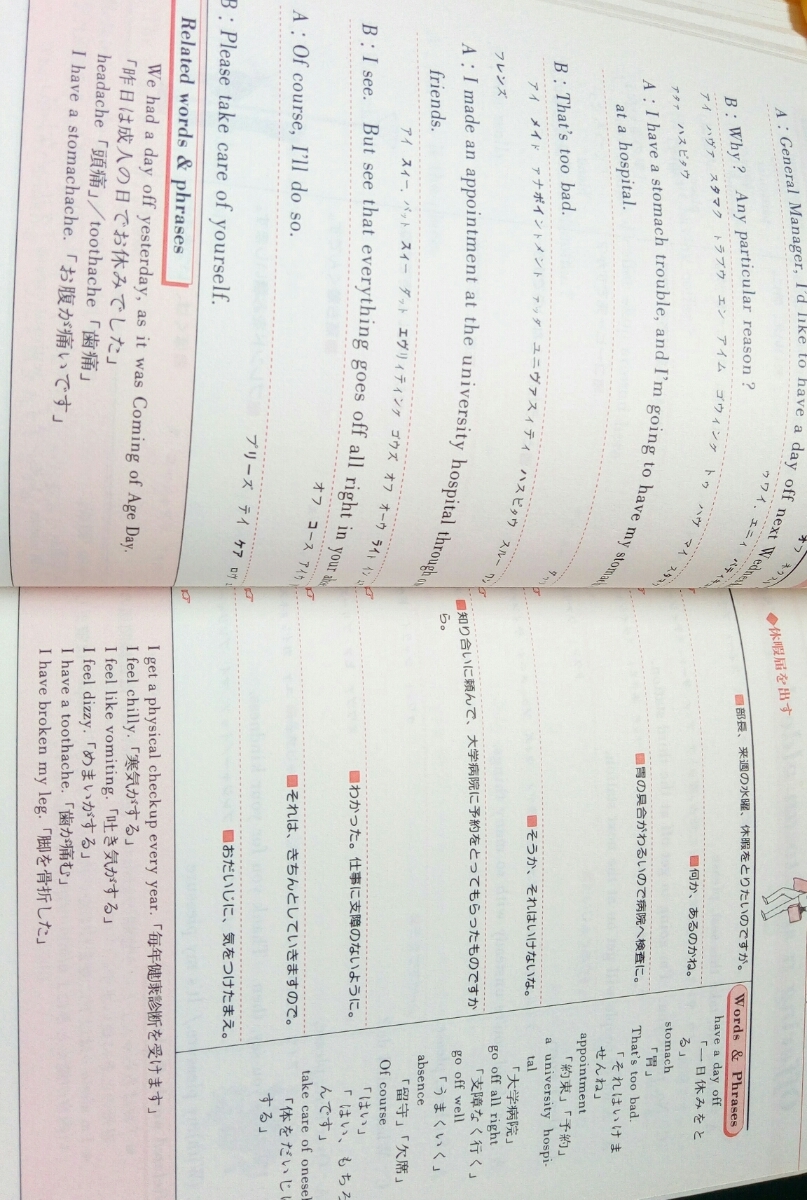 A：General Manager, I'd like to have a day off next
ゥワイ．エニィ
B：Why？ Any particular reason？
アイ ハヴァ スタマク トラブウ エン アイム ゴウイング トゥ ハヴ マイ
アタァ ハスピタウ
A：I have a stomach trouble, and I'm going to have my
at a hospital.
B：That's too bad.
アイ メイド アナポイントメント アッダ ユニヴァスィティ ハスピタウ スルー
フレンズ
A：I made an appointment at the university hospital through
friends.
アイ スィー．バット スィー ダット エヴリィティング ゴウズ オフ オーウ ライ
B：I see. But see that everything goes off all right in your
オフ コース
A：Of course, I'll do so.
プリーズ テイ ケア
B：Please take care of yourself.
Related words & phrases
We had a day off yesterday, as it was Coming of Age Day.
「昨日は成人の日でお休みでした」
headache「頭痛」／toothache「歯痛」
I have a stomachache.「お腹が痛いです」
◆休暇届を出す
■部長、来週の水曜、休暇をとりたいのですが。
■何か、あるのかね。
■胃の具合がわるいので病院へ検査に。
■そうか、それはいけないな。
■知り合いに頼んで、大学病院に予約をとってもらったものですか
ら。
■わかった。仕事に支障のないように。
■それは、きちんとしていきますので。
■おだいじに、気をつけたまえ。
Words & Phrases
have a day off
「一日休みをと
る」
stomach
「胃」
That's too bad.
「それはいけま
せんね」
appointment
「約束」「予約」
a university hospi-
tal
「大学病院」
go off all right
「支障なく行く」
go off well
「うまくいく」
absence
「留守」「欠席」
Of course
「はい」
「はい、もちろ
んです」
take care of oneself
「体をだいじに
する」
I get a physical checkup every year.「毎年健康診断を受けます」
I feel chilly.「寒気がする」
I feel like vomiting.「吐き気がする」
I feel dizzy.「めまいがする」
I have a toothache.「歯が痛む」
I have broken my leg.「脚を骨折した」